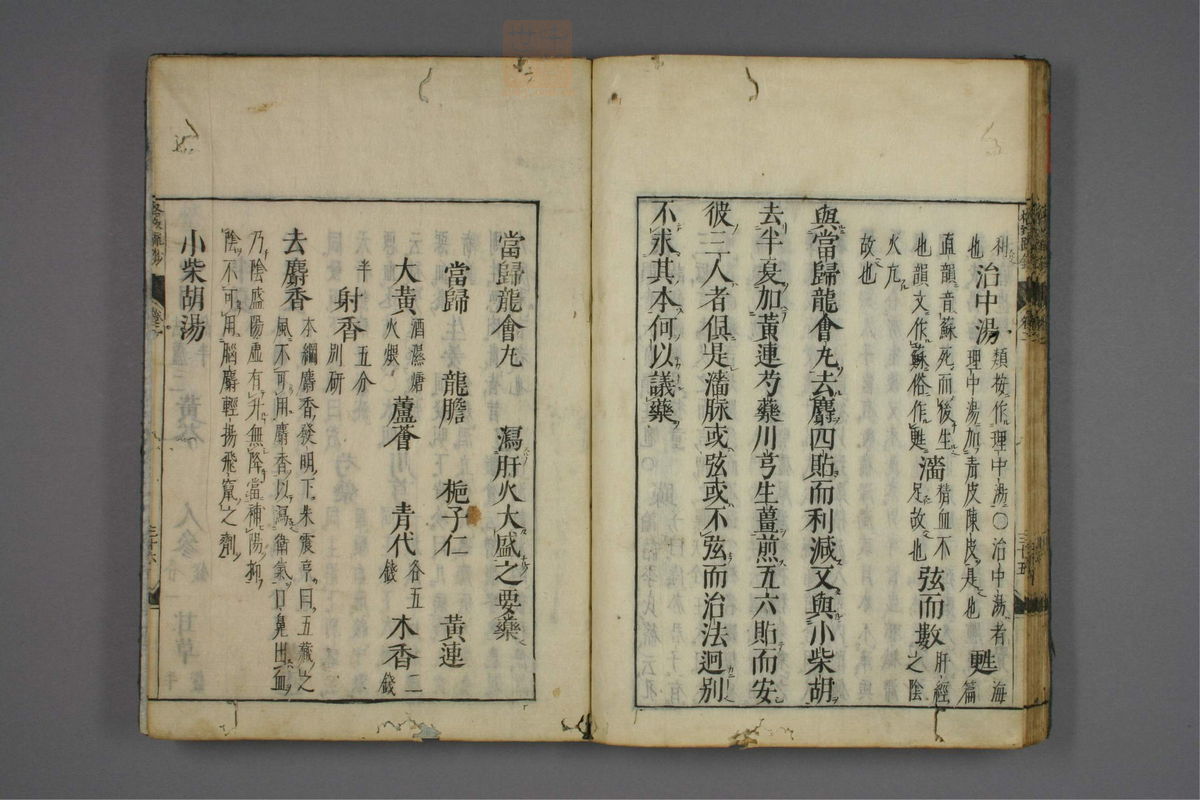 利 治中湯 類按作理中湯○治中湯者
也 理中湯加青皮陳皮是也 甦 海篇
直韻音蘇死而後生
也韻文作蘇俗作甦 濇 猜血不足故也 弦而數 肝經之陰
火九
故也
與當歸龍會丸去麝四貼而利減又與小柴胡
去半夏加黃連芍藥川芎生薑煎五六貼而安
彼三人者俱是濇脉或弦或不弦而治法迥別
不求其本何以議藥
三十五
當歸龍會丸 瀉肝火大盛之要藥
當歸 龍膽 梔子仁 黃連
大黃 酒濕煻火煨 蘆薈 青代 各五錢 木香 二錢
半 射香 五分別研
去麝香 本綱麝香發明下朱震亨曰五藏之
風不可用麝香以瀉衛氣口鼻出血
乃陰盛陽虛有升無降當補陽抑
陰不可用腦麝輕揚飛竄之劑
小柴胡湯
三十六